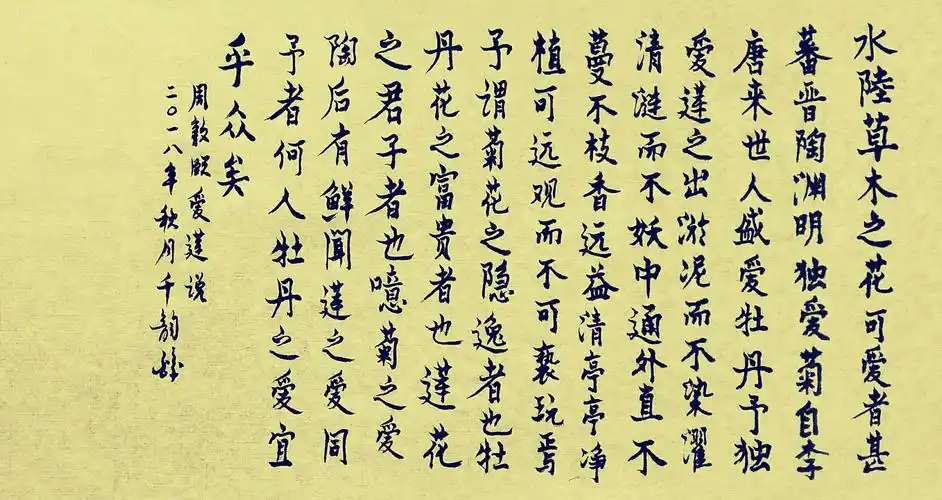 水陸草木之花可愛者甚
蕃晋陶渊明独愛菊自李
唐来世人盛愛牡丹予独
愛蓮之出淤泥而不染濯
清漣而不妖中通外直不
蔓不枝香远益清亭亭净
植可远观而不可亵玩焉
予謂菊花之隐逸者也牡
丹花之富貴者也蓮花
之君子者也噫菊之愛
陶后有鮮聞蓮之愛同
予者何人牡丹之愛宜
乎众矣
周敦颐愛蓮说
二〇一八年秋月千韵